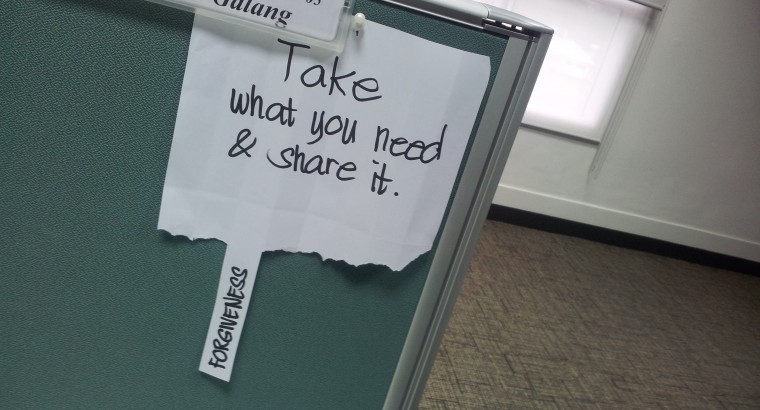 Galang
Take
what you need
& share it.
FORGIVENESS